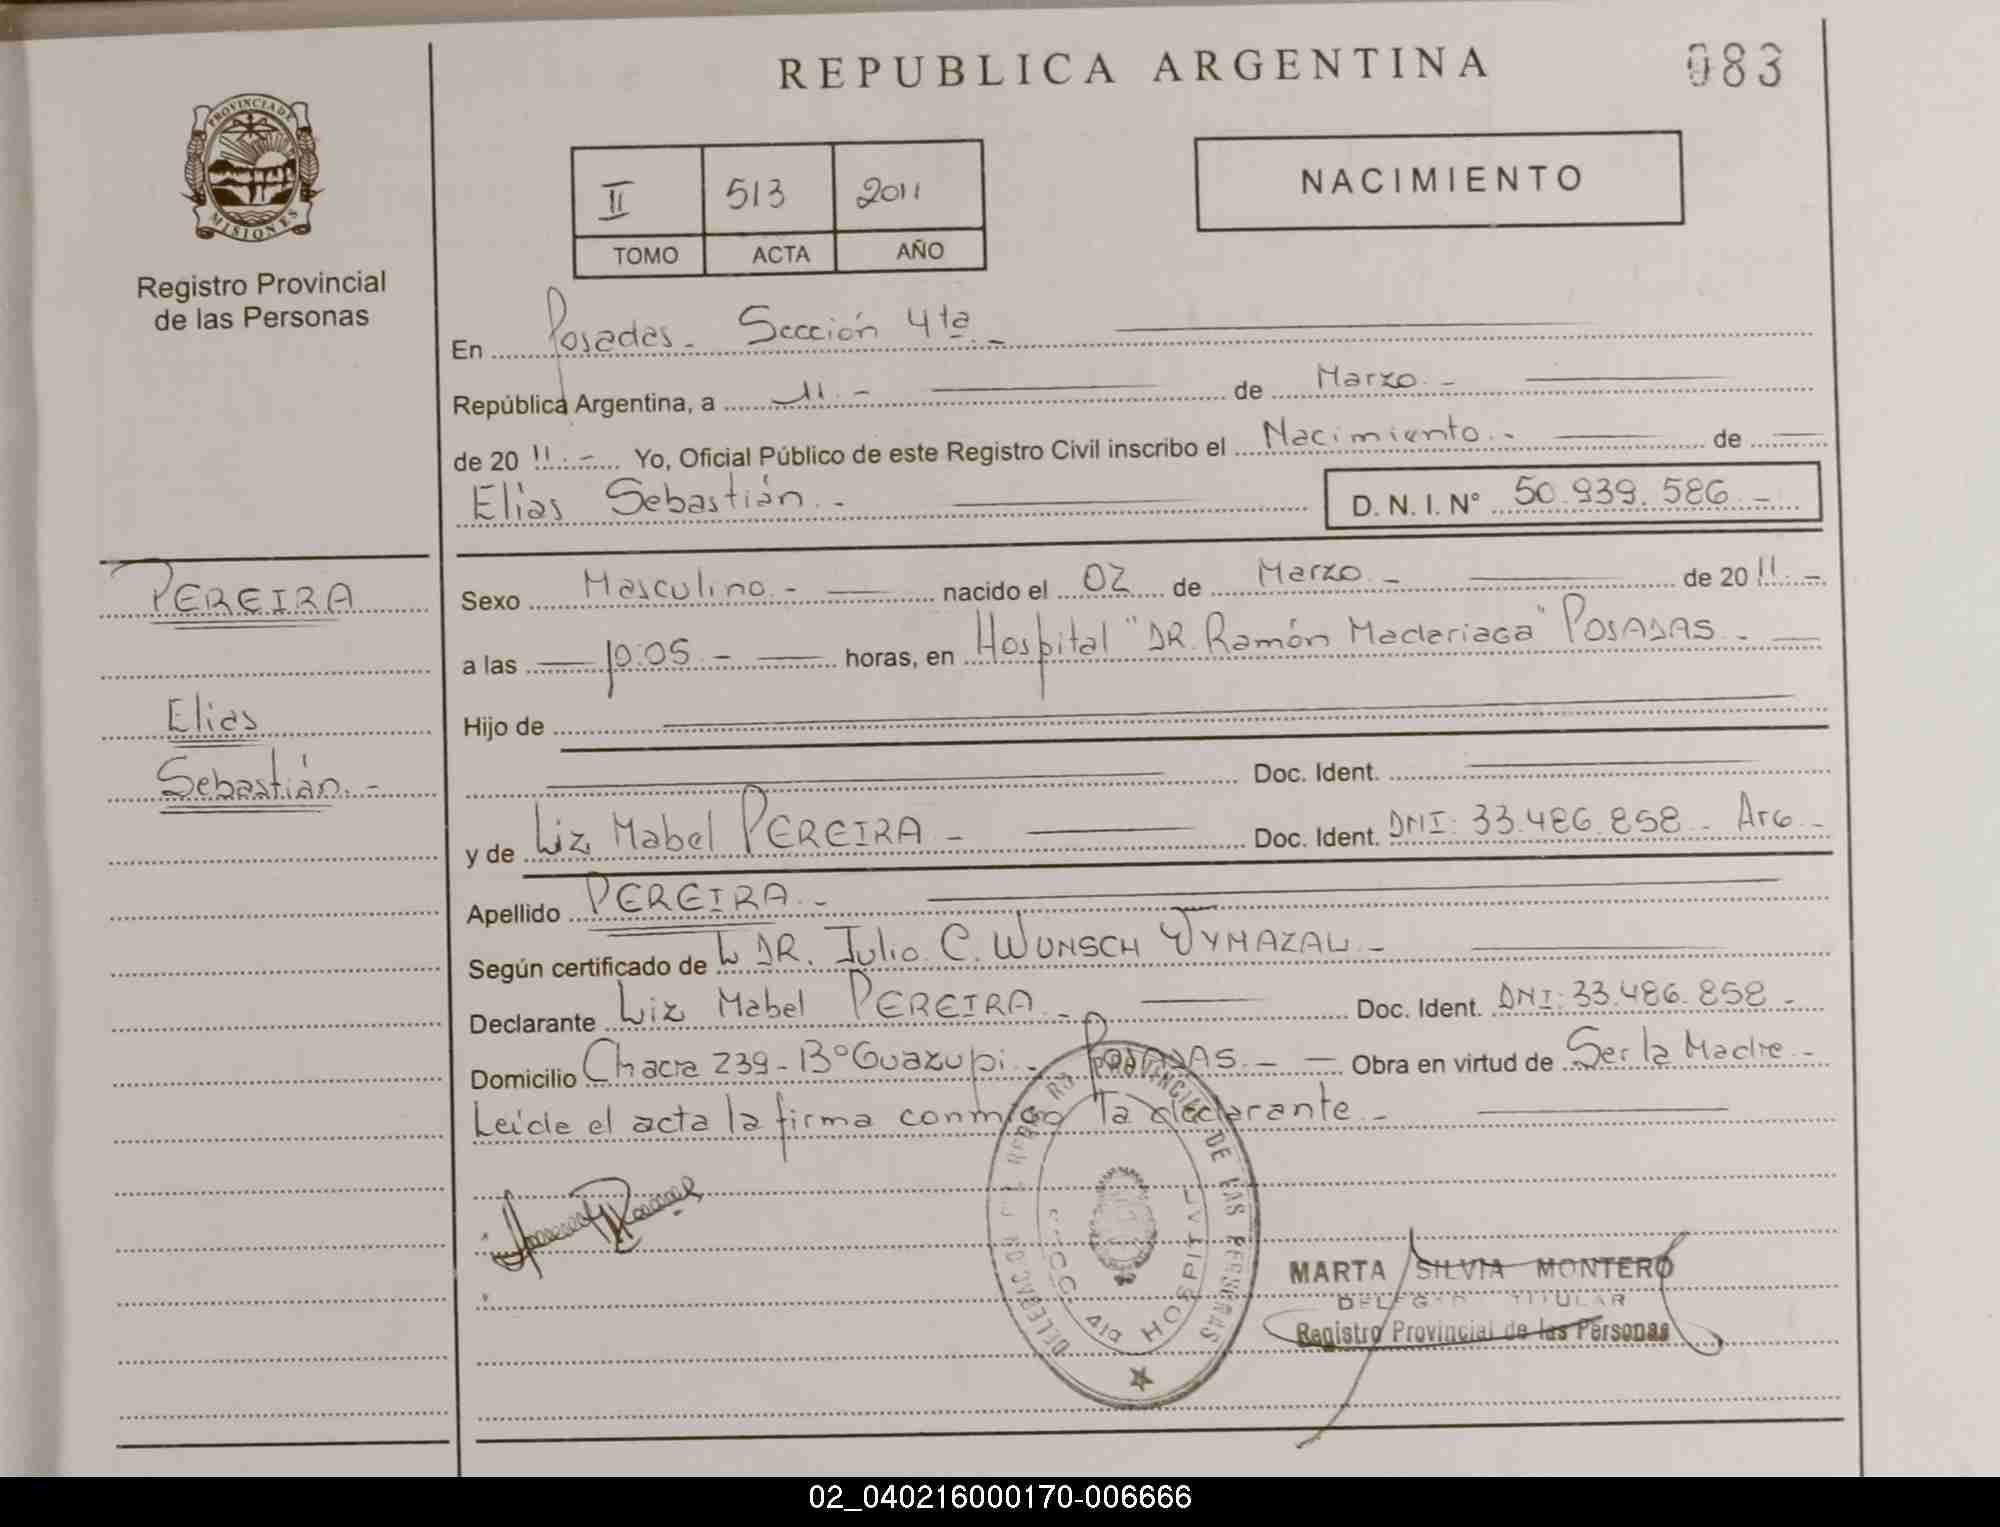 REPUBLICA ARGENTINA
083
PROVINCIA DE
MISIONES
Registro Provincial
de las Personas
II 513 2011
TOMO ACTA AÑO
NACIMIENTO
En Posadas - Sección 4ta. -
República Argentina, a 11. - de Marzo. -
de 20 11. - Yo, Oficial Público de este Registro Civil inscribo el Nacimiento. - de
Elías Sebastián. - D. N. I. N° 50.939.586. -
PEREIRA
Elías
Sebastián. -
Sexo Masculino. - nacido el 02 de Marzo. - de 20 11. -
a las 10:05. - horas, en Hospital "DR. Ramón Madariaga" POSADAS. -
Hijo de
Doc. Ident.
y de Liz Mabel PEREIRA. - Doc. Ident. DNI: 33.486.858 - ARG. -
Apellido PEREIRA. -
Según certificado de DR. Julio C. WUNSCH
Declarante Liz Mabel PEREIRA. - Doc. Ident. DNI: 33.486.858. -
Domicilio Chacra 239 - B° Guazupi. - POSADAS. - Obra en virtud de Ser la Madre. -
Leída el acta la firma conmigo la declarante. -
PROVINCIAL DE LAS PERSONAS
SECC. 4ta HOSPITAL
MARTA SILVIA MONTERO
DELEGADO TITULAR
Registro Provincial de las Personas
02_040216000170-006666